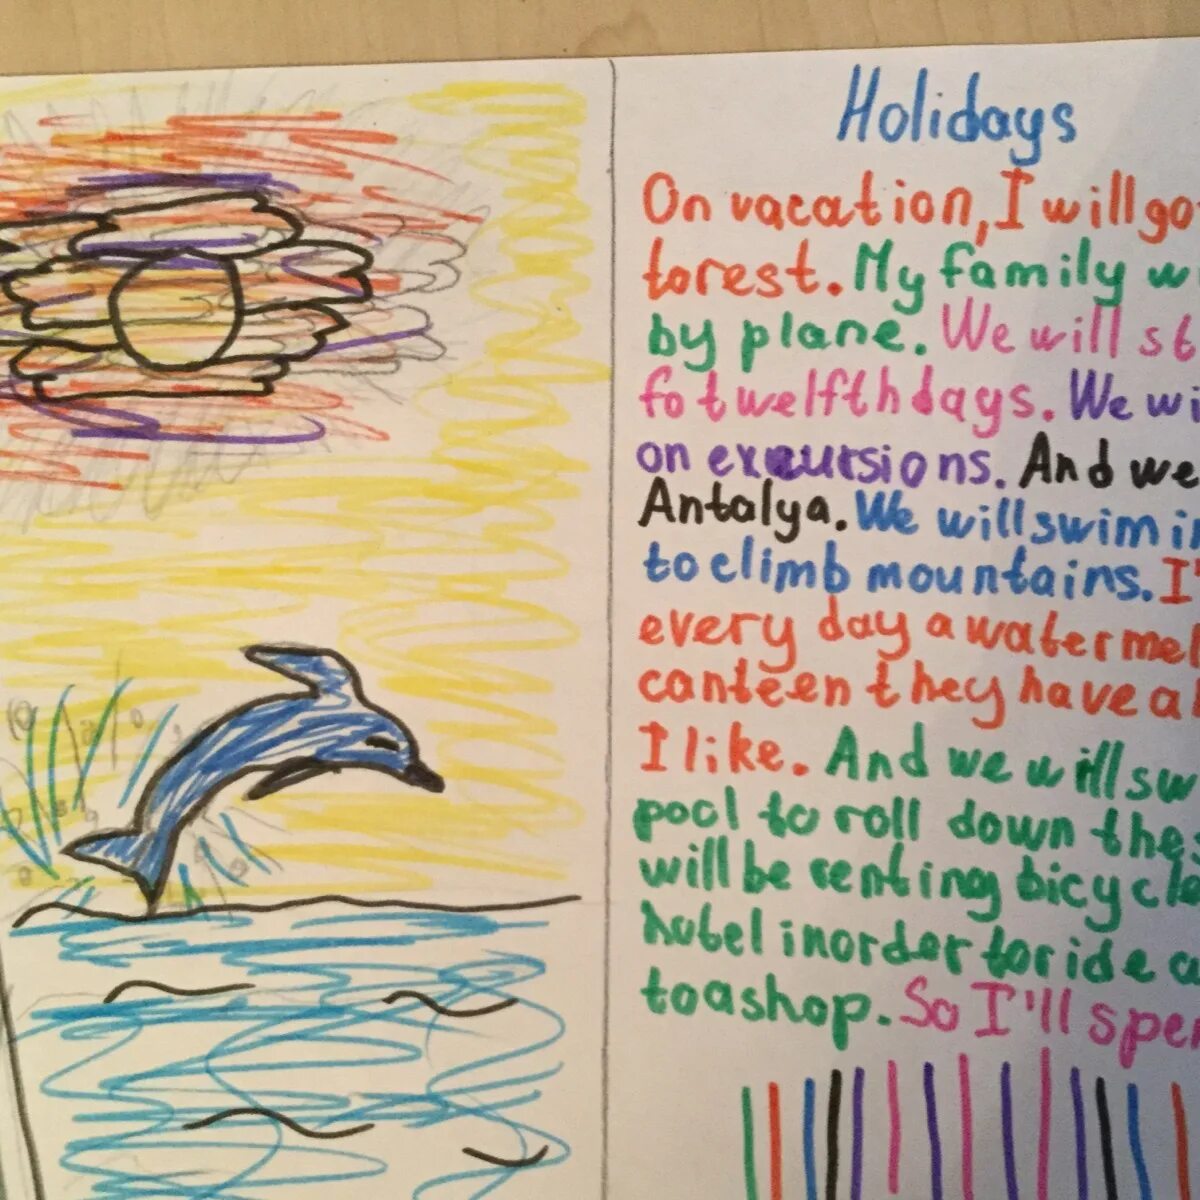 Holidays
On vacation, I will go
forest. My family w
by plane. We will st
fot twelfth days. We wi
on excursions. And we
Antalya. We will swim i
to climb mountains. I'
every day a watermel
canteen they have a
I like. And we will sw
pool to roll down the s
will be renting bicycle
hotel in order to ride a
to a shop. So I'll spe